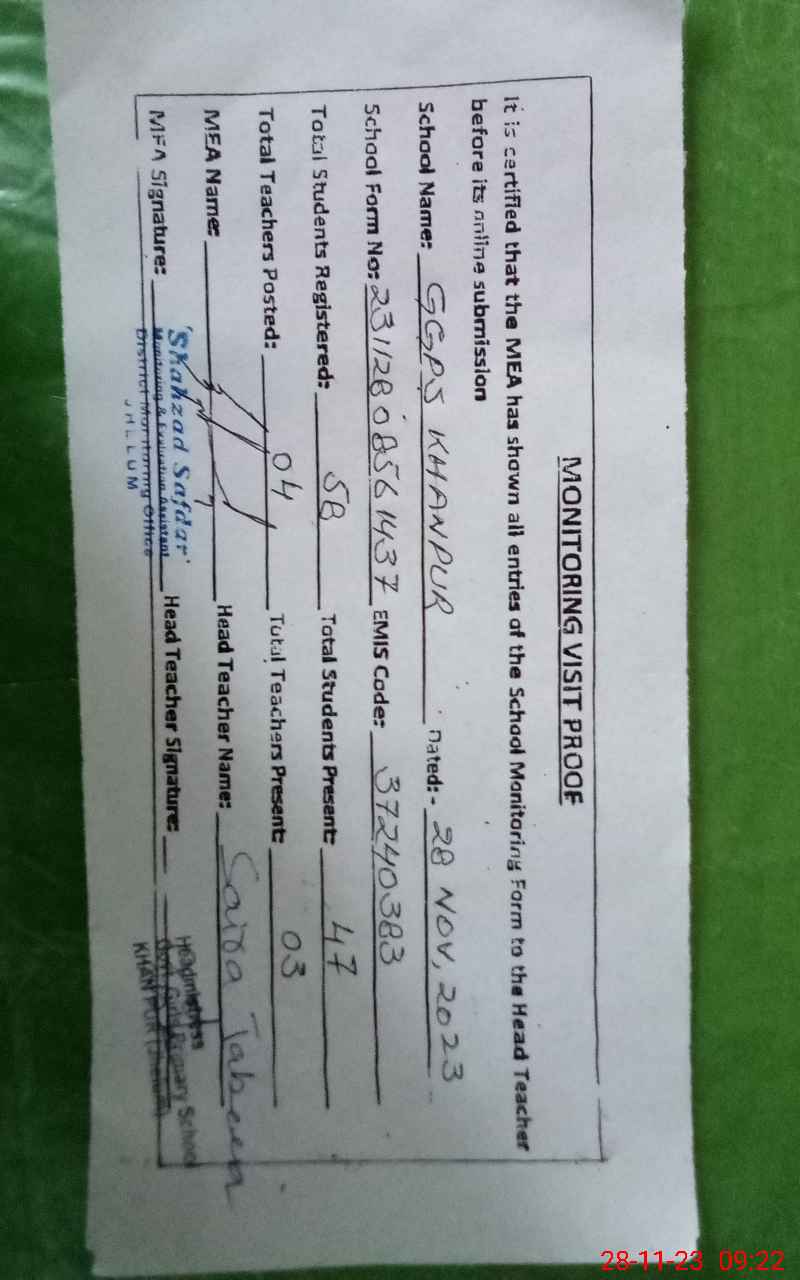 MONITORING VISIT PROOF
It is certified that the MEA has shown all entries of the School Monitoring Form to the Head Teacher
before its online submission
School Name: GGPS KHANPUR Dated:- 28 NOV, 2023
School Form No: 23112808561437 EMIS Code: 37240383
Total Students Registered: 58 Total Students Present: 47
Total Teachers Posted: 04 Total Teachers Present: 03
MEA Name: Head Teacher Name: Saira Tabeen
MEA Signature: Head Teacher Signature:
Shahzad Safdar
Monitoring & Evaluation Assistant
District Monitoring Office
JHELUM
Headmistress
Govt. Girls Primary School
KHANPUR
28-11-23 09:22